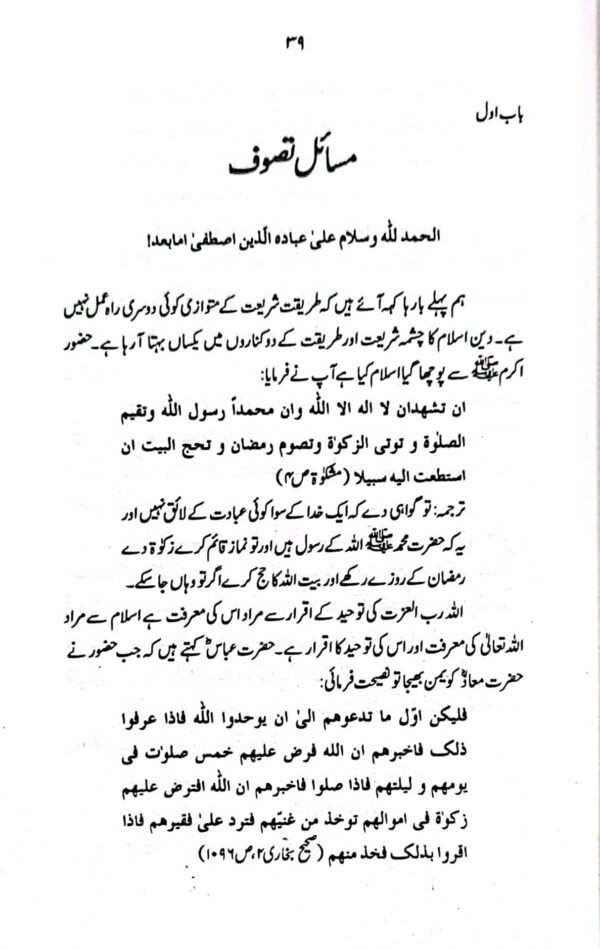 ۳۹
باب اول
مسائل تصوف
الحمد للّٰه وسلام علیٰ عباده الّذین اصطفیٰ امابعد!
ہم پہلے بارہا کہہ آئے ہیں کہ طریقت شریعت کے متوازی کوئی دوسری راہ عمل نہیں
ہے۔ دین اسلام کا چشمہ شریعت اور طریقت کے دو کناروں میں یکساں بہتا آ رہا ہے۔ حضور
اکرم ﷺ سے پوچھا گیا اسلام کیا ہے آپ نے فرمایا:
ان تشهدان لا اله الا اللّٰه وان محمداً رسول اللّٰه وتقیم
الصلوٰة و توتی الزکوٰة وتصوم رمضان و تحج البیت ان
استطعت الیه سبیلا (مشکوٰۃ ص۴)
ترجمہ: تو گواہی دے کہ ایک خدا کے سوا کوئی عبادت کے لائق نہیں اور
یہ کہ حضرت محمد ﷺ اللہ کے رسول ہیں اور تو نماز قائم کرے زکوٰۃ دے
رمضان کے روزے رکھے اور بیت اللہ کا حج کرے اگر تو وہاں جا سکے۔
اللہ رب العزت کی توحید کے اقرار سے مراد اس کی معرفت ہے اسلام سے مراد
اللہ تعالیٰ کی معرفت اور اس کی توحید کا اقرار ہے۔ حضرت عباسؓ کہتے ہیں کہ جب حضور نے
حضرت معاذؓ کو یمن بھیجا تو نصیحت فرمائی:
فلیکن اوّل ما تدعوهم الیٰ ان یوحدوا اللّٰه فاذا عرفوا
ذلک فاخبرهم ان اللّٰه فرض علیهم خمس صلوٰت فی
یومهم و لیلتهم فاذا صلوا فاخبرهم ان اللّٰه افترض علیهم
زکوٰة فی اموالهم توخذ من غنیّهم فترد علیٰ فقیرهم فاذا
اقروا بذلک فخذ منهم (صحیح بخاری ۲، ص۱۰۹۶)